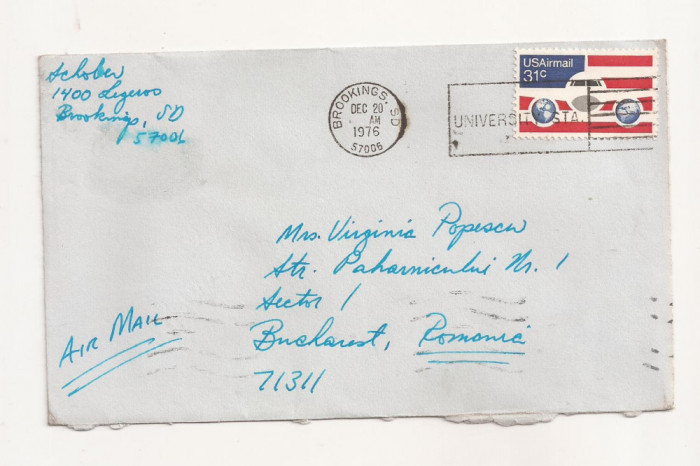 Schober
1400
Brookings, SD
57006
BROOKINGS, SD
DEC 20
AM
1976
57006
UNIVERSITY STA.
USAirmail
31c
Mrs. Virginia Popescu
Str. Paharnicului Nr. 1
Sector 1
Bucharest, Romania
71311
AIR MAIL